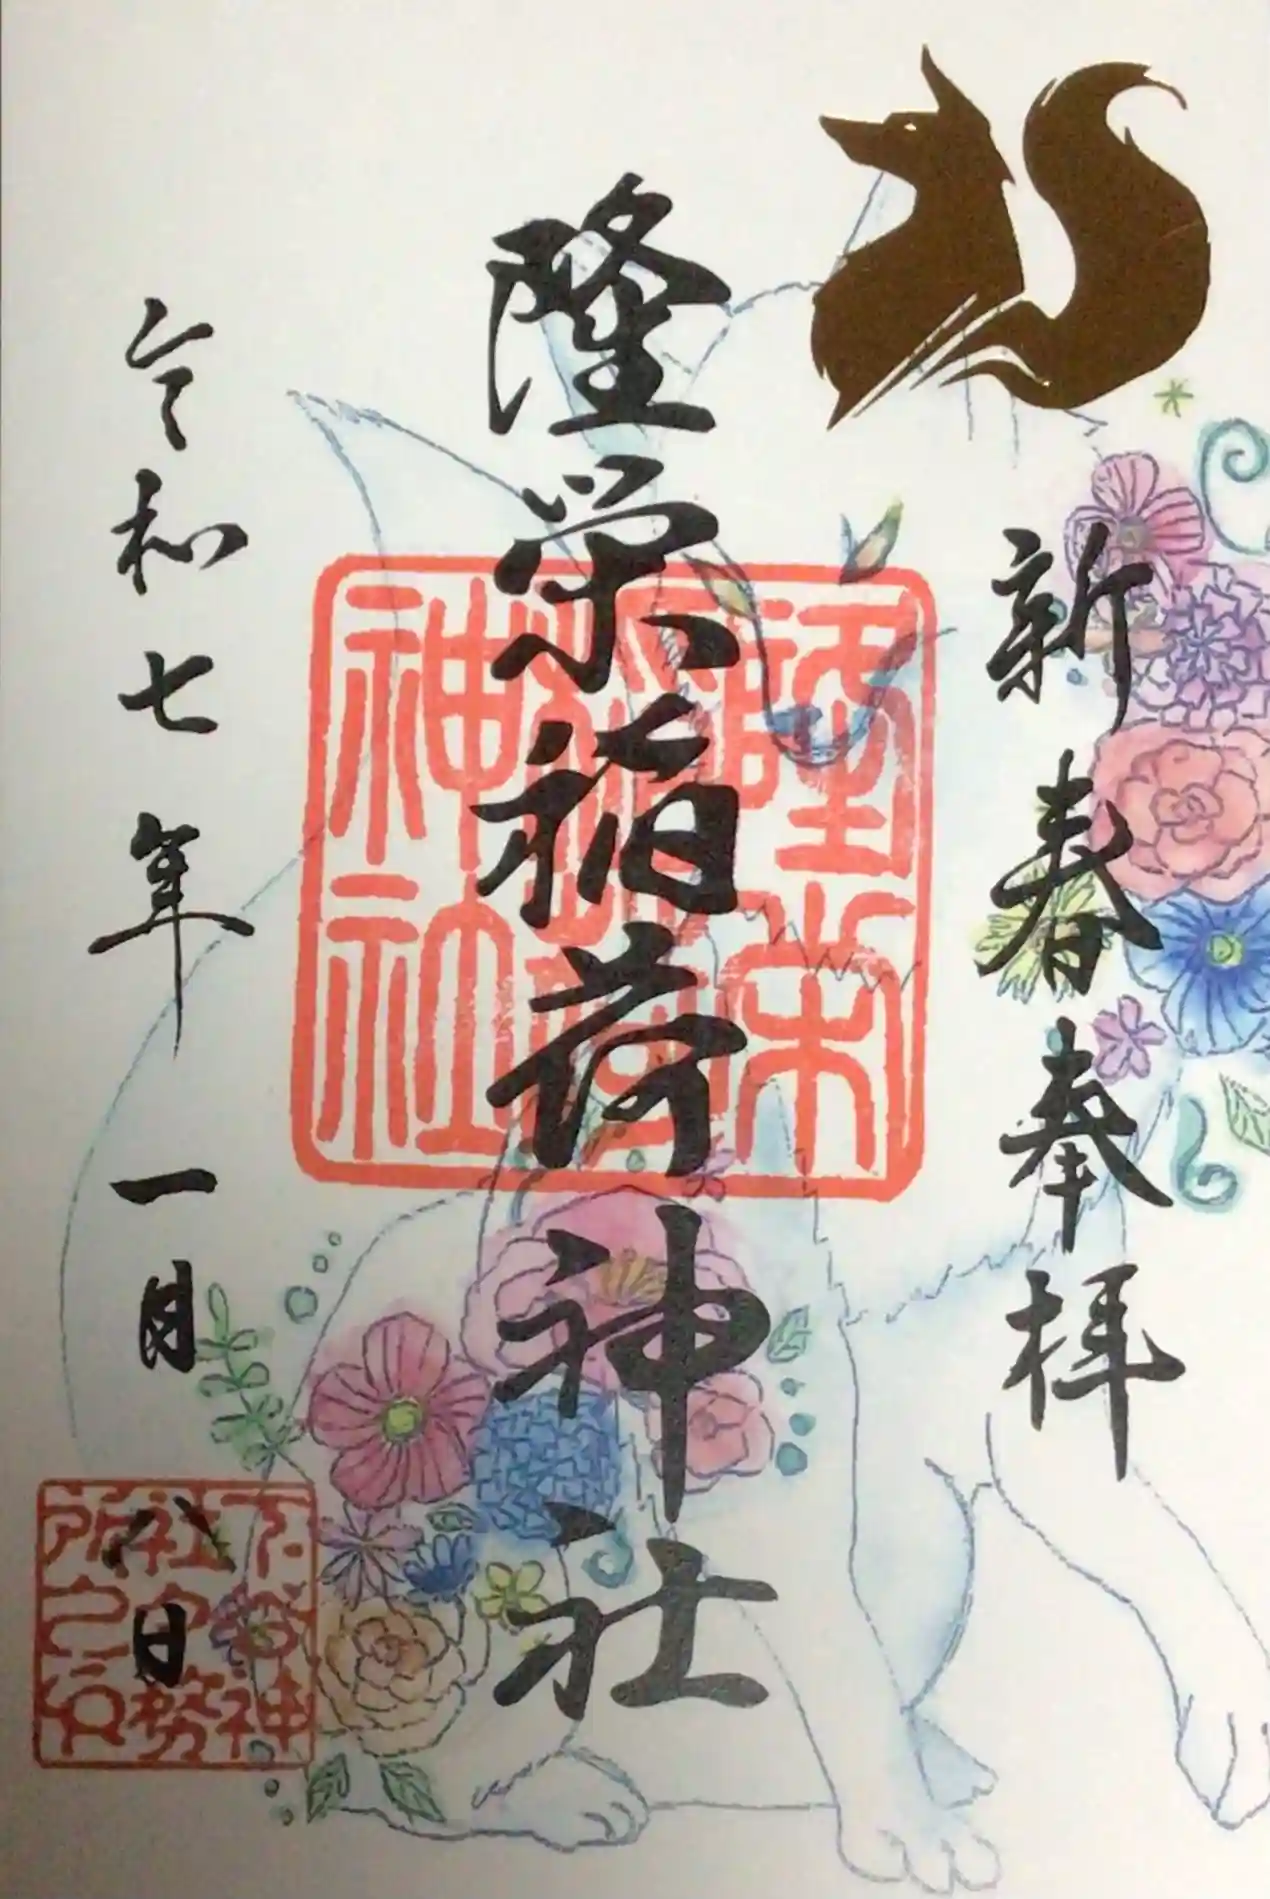 新春奉拝
隆栄稲荷神社
令和七年一月八日
隆栄稲荷神社
下谷神社社務所之印